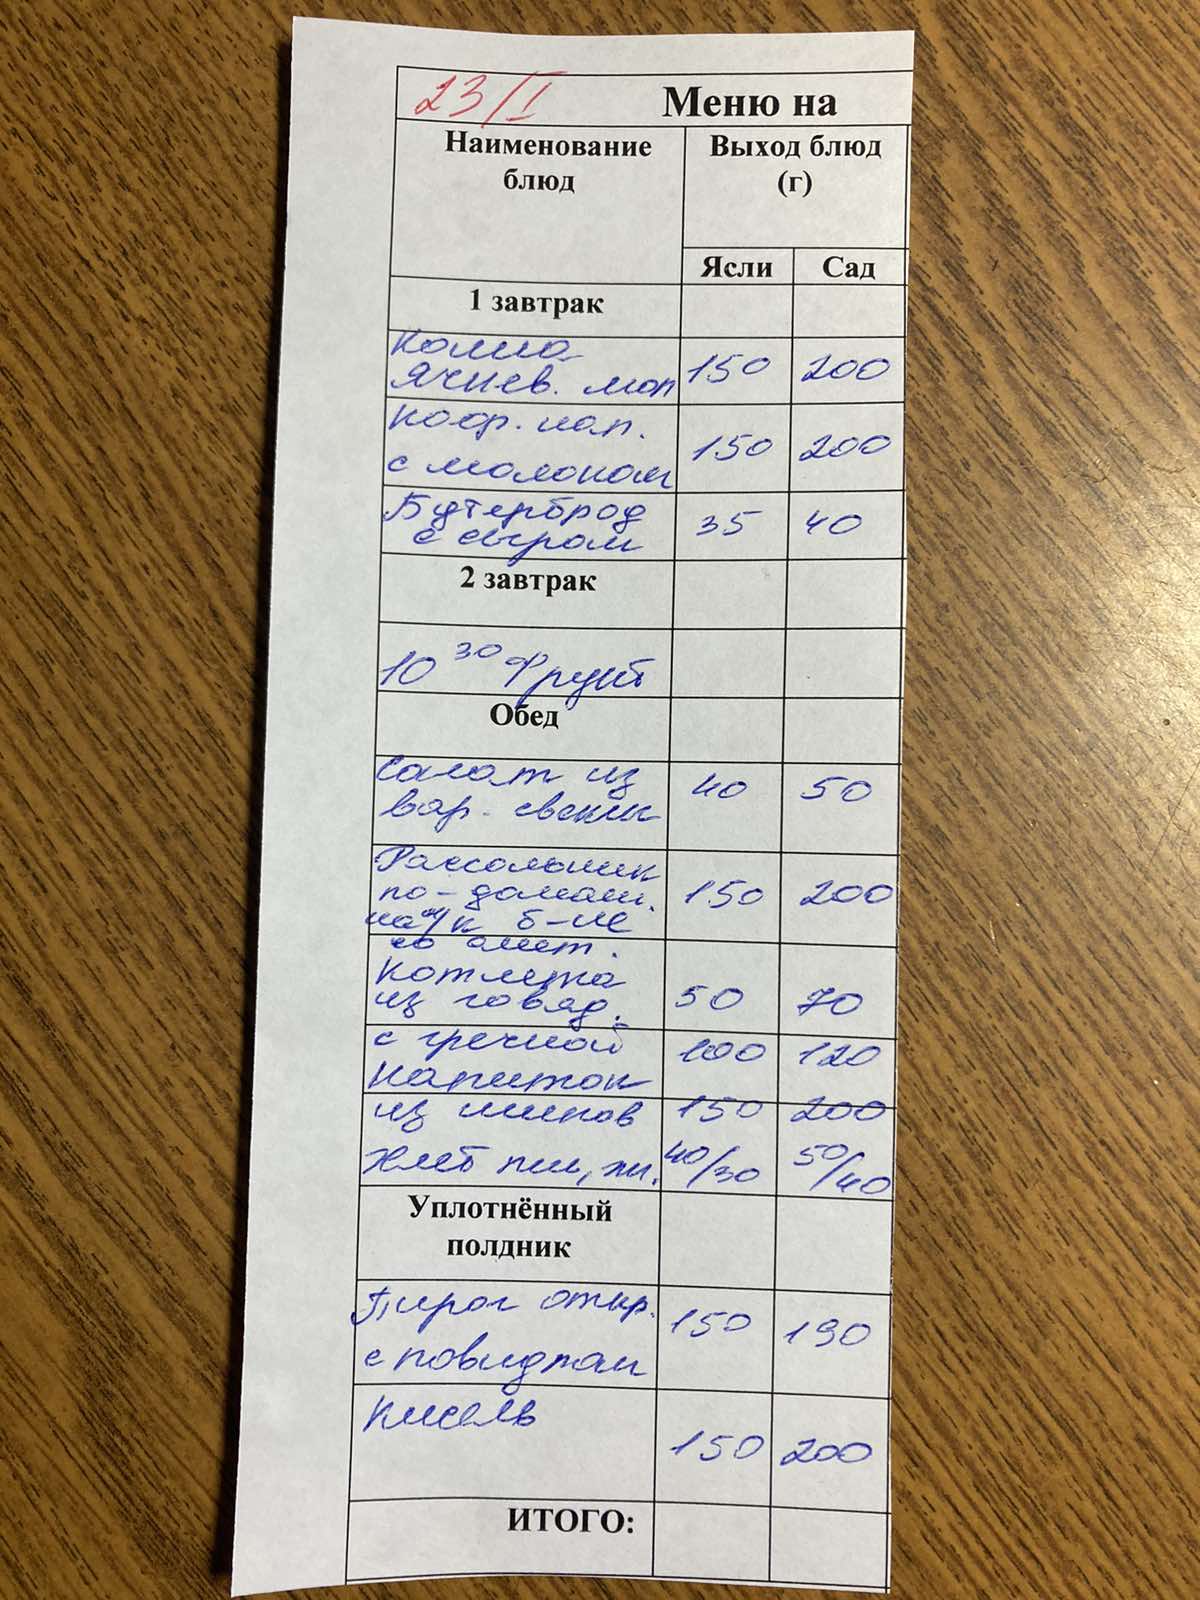 23/I Меню на
Наименование блюд Выход блюд (г)
Ясли Сад
1 завтрак
Каша
ячнев. мол 150 200
Коф. нап.
с молоком 150 200
Бутерброд
с сыром 35 40
2 завтрак
10 30 Фрукт
Обед
Салат из
вар. свеклы 40 50
Рассольник
по-домаш. 150 200
на м/к б-не
со смет.
Котлета
из говяд. 50 70
с гречкой 100 120
Напиток
из шипов 150 200
Хлеб пш, рж. 40/30 50/40
Уплотнённый
полдник
Пирог откр. 150 190
с повидлом
Кисель
150 200
ИТОГО: